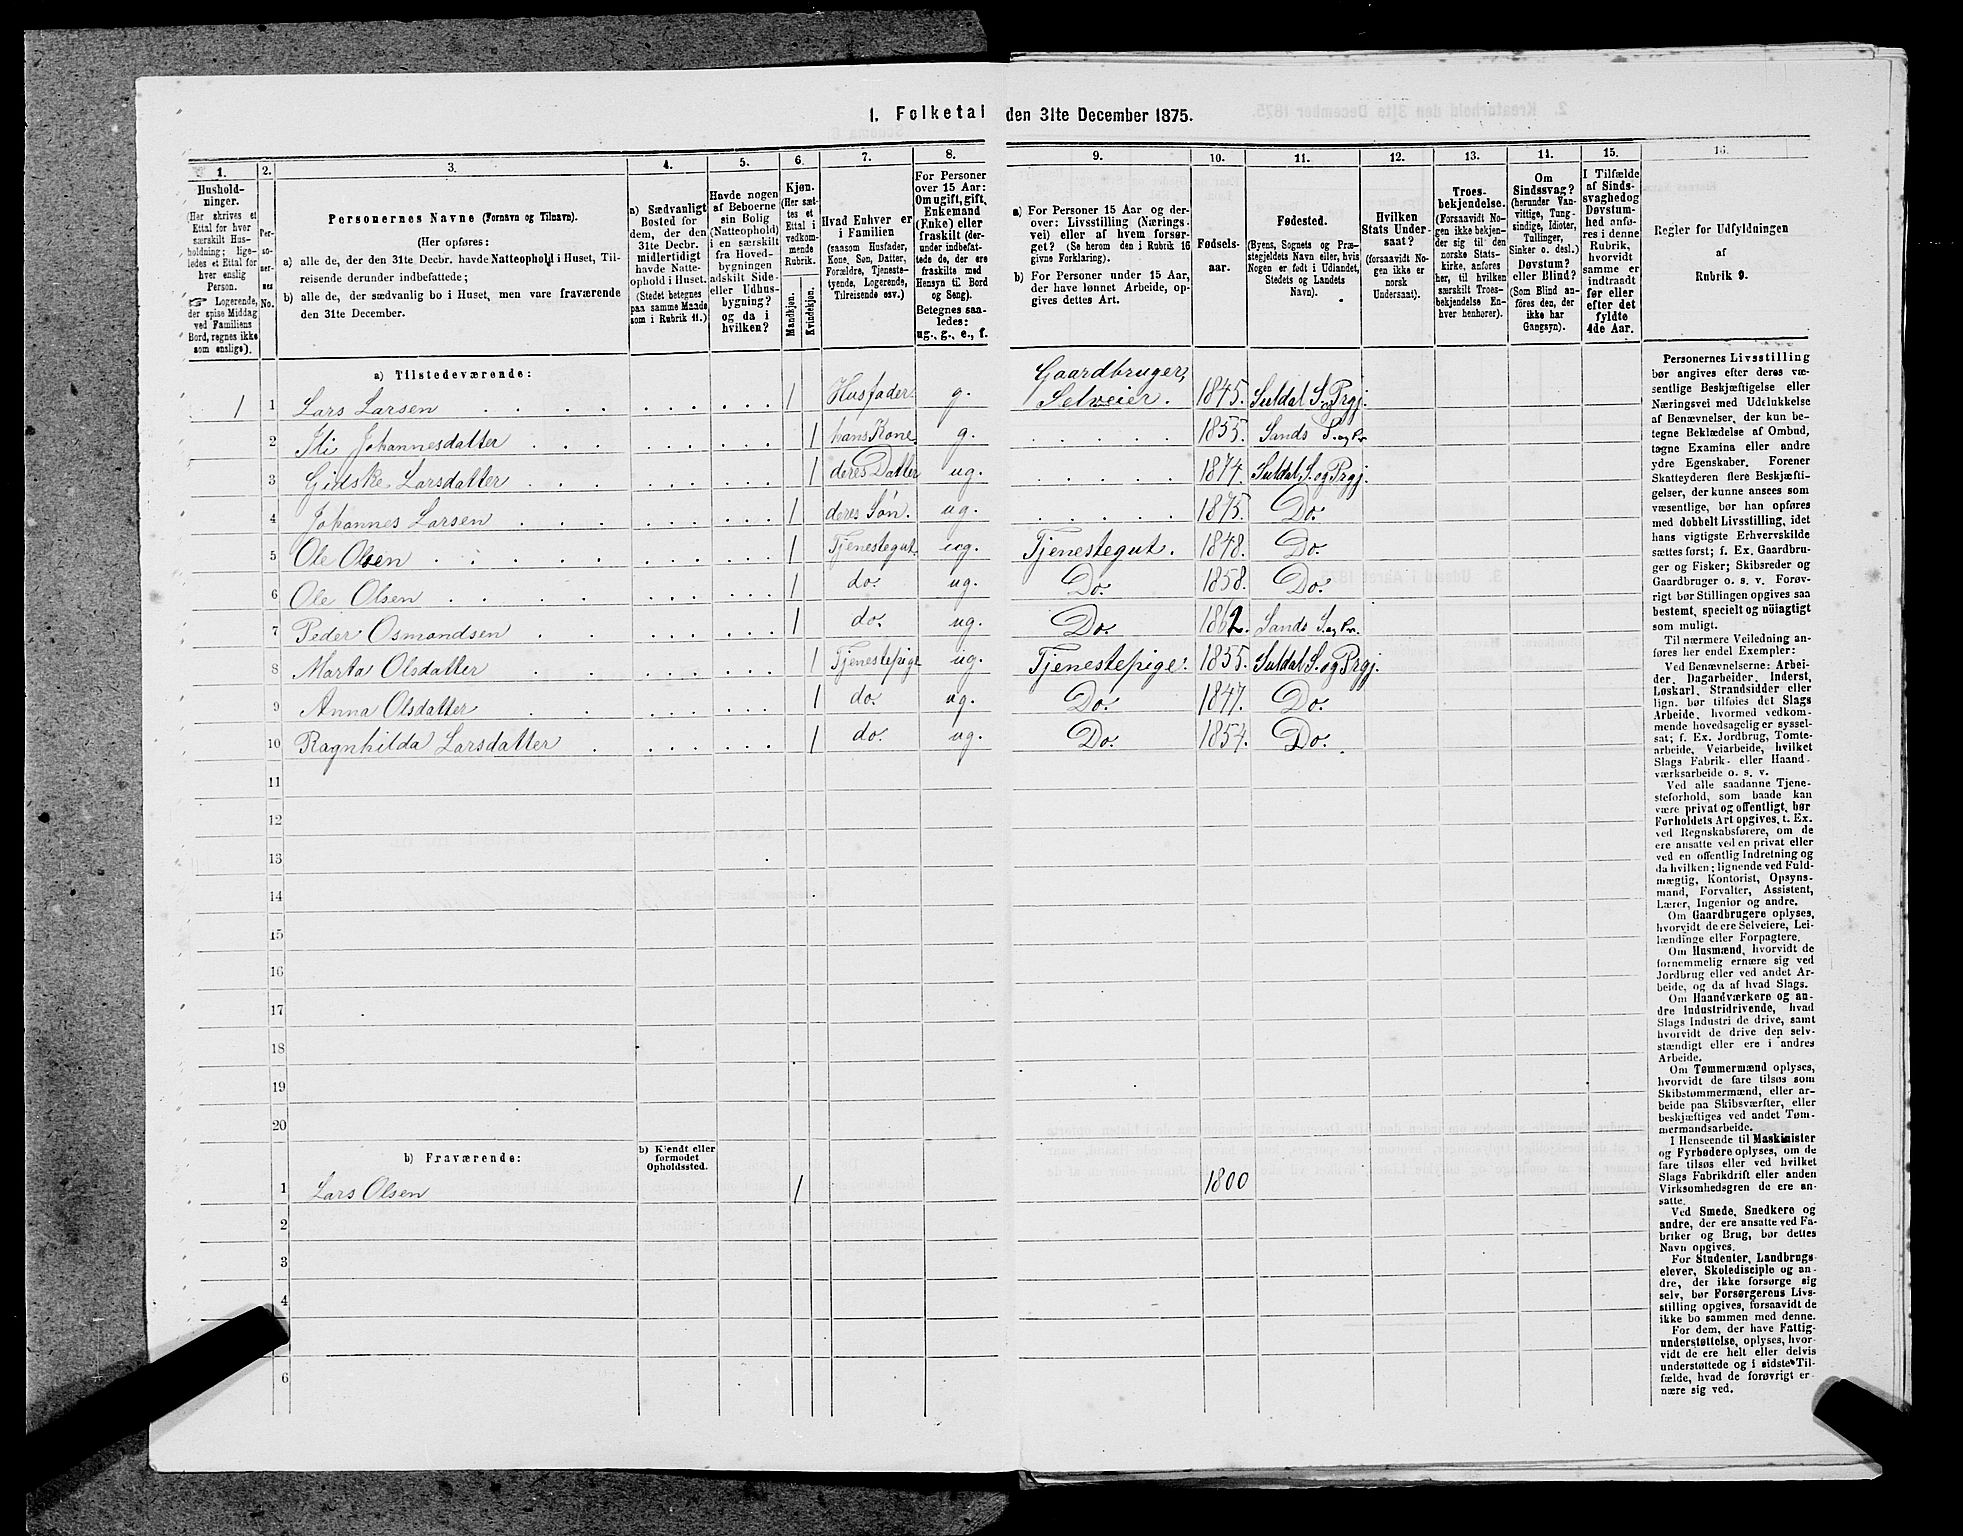 1. Folketal den 31te December 1875.
1. 2. 3. 4. 5. 6. 7. 8. 9. 10. 11. 12. 13. 14. 15. 16.
Hushold-
ninger.
(Her skrives et
Ettal for hver
særskilt Hus-
holdning; lige-
ledes et Ettal for
hver enslig
Person.
☞ Logerende,
der spise Middag
ved Familiens
Bord, regnes ikke
som enslige).
Per-
so-
ner-
nes
No.
Personernes Navne (Fornavn og Tilnavn).
(Her opføres:
a) alle de, der den 31te Decbr. havde Natteophold i Huset, Til-
reisende derunder indbefattede;
b) alle de, der sædvanlig bo i Huset, men vare fraværende
den 31te December.
a) Sædvanligt
Bosted for
dem, der den
31te Decbr.
midlertidigt
havde Natte-
ophold i Huset.
(Stedet betegnes
paa samme Maade
som i Rubrik 11.)
Havde nogen
af Beboerne
sin Bolig
(Natteophold)
i en særskilt
fra Hoved-
bygningen
adskilt Side-
eller Udhus-
bygning?
og da i
hvilken?
Kjøn.
(Her sæt-
tes et
Ettal i
vedkom-
mende
Rubrik.
Mandkjøn.
Kvindekjøn.
Hvad Enhver er
i Familien
(saasom Husfader,
Kone, Søn, Datter,
Forældre, Tjeneste-
tyende, Logerende,
Tilreisende osv.)
For Personer
over 15 Aar:
Om ugift, gift,
Enkemand
(Enke) eller
fraskilt (der-
under indbefat-
tede de, der ere
fraskilte med
Hensyn til Bord
og Seng).
Betegnes saa-
ledes:
ug., g., e., f.
a) For Personer 15 Aar og der-
over: Livsstilling (Nærings-
vei) eller af hvem forsør-
get? (Se herom den i Rubrik 16
givne Forklaring).
b) For Personer under 15 Aar,
der have lønnet Arbeide, op-
gives dettes Art.
Fødsels-
aar.
Fødested.
(Byens, Sognets og Præ-
stegjeldets Navn eller, hvis
Nogen er født i Udlandet,
Stedets og Landets
Navn).
Hvilken
Stats Under-
saat?
(forsaavidt No-
gen ikke er
norsk
Undersaat).
Troes-
bekjendelse.
(Forsaavidt No-
gen ikke bekjen-
der sig til den
norske Stats-
kirke, anføres
her, til hvilken
særskilt Troes-
bekjendelse En-
hver henhører).
Om
Sindssvag?
(herunder Van-
vittige, Tung-
sindige, Idioter,
Tullinger,
Sinker o. desl.)
Døvstum?
eller Blind?
(Som Blind an-
føres den, der
ikke har
Gangsyn).
I Tilfælde
af Sinds-
svaghed og
Døvstum-
hed anfø-
res i denne
Rubrik,
hvorvidt
samme er
indtraadt
før eller
efter det
fyldte
4de Aar.
Regler for Udfyldningen
af
Rubrik 9.
a) Tilstedeværende:
1 1 Lars Larsen 1 Husfader g. Gaardbruger, Selveier. 1845. Suldal S. og Prgj.
2 Iti Johannesdatter 1 hans Kone g. 1855. Sands S. og Pr
3 Gidske Larsdatter 1 deres Datter ug. 1874. Suldal S. og Prgj.
4 Johannes Larsen 1 deres Søn. ug. 1875. Do.
5 Ole Olsen 1 Tjenestegut. ug. Tjenestegut. 1848. Do.
6 Ole Olsen 1 do. ug. Do. 1858. Do.
7 Peder Osmondsen 1 do. ug. Do. 1862. Sands S. og Pr.
8 Marta Olsdatter 1 Tjenestepige ug. Tjenestepige. 1855. Suldal S. og Prgj.
9 Anna Olsdatter 1 do. ug. Do. 1847. Do.
10 Ragnhilda Larsdatter 1 do. ug. Do. 1854. Do.
11
12
13
14
15
16
17
18
19
20
b) Fraværende:
b) Kjendt eller
formodet
Opholdssted.
1 Lars Olsen 1 1800
2
3
4
6
Personernes Livsstilling
bør angives efter deres væ-
sentlige Beskjæftigelse eller
Næringsvei med Udelukkelse
af Benævnelser, der kun be-
tegne Beklædelse af Ombud,
tagne Examina eller andre
ydre Egenskaber. Forener
Skatteyderen flere Beskjæfti-
gelser, der kunne ansees som
væsentlige, bør han opføres
med dobbelt Livsstilling, idet
hans vigtigste Erhvervskilde
sættes først; f. Ex. Gaardbru-
ger og Fisker; Skibsreder og
Gaardbruger o. s. v. Forøv-
rigt bør Stillingen opgives saa
bestemt, specielt og nöiagtigt
som muligt.
Til nærmere Veiledning an-
føres her endel Exempler:
Ved Benævnelserne: Arbei-
der, Dagarbeider, Inderst,
Løskarl, Strandsidder eller
lign. bør tilføies det Slags
Arbeide, hvormed vedkom-
mende hovedsagelig er syssel-
sat; f. Ex. Jordbrug, Tomte-
arbeide, Veiarbeide, hvilket
Slags Fabrik- eller Haand-
værksarbeide o. s. v.
Ved alle saadanne Tjene-
steforhold, som baade kan
være privat og offentligt, bør
Forholdets Art opgives, t. Ex.
ved Regnskabsførere, om de
ere ansatte ved en privat eller
ved en offentlig Indretning og
da hvilken; lignende ved Fuld-
mægtig, Kontorist, Opsyns-
mand, Forvalter, Assistent,
Lærer, Ingeniør og andre.
Om Gaardbrugere oplyses,
hvorvidt de ere Selveiere, Lei-
lændinge eller Forpagtere.
Om Husmænd, hvorvidt de
fornemmelig ernære sig ved
Jordbrug eller ved andet Ar-
beide, og da af hvad Slags.
Om Haandværkere og an-
dre Industridrivende, hvad
Slags Industri de drive, samt
hvorvidt de drive den selv-
stændigt eller ere i andres
Arbeide.
Om Tømmermænd oplyses,
hvorvidt de fare tilsøs som
Skibstømmermænd, eller ar-
beide paa Skibsværfter, eller
beskjæftiges ved andet Tøm-
mermandsarbeide.
I Henseende til Maskinister
og Fyrbødere oplyses, om de
fare tilsøs eller ved hvilket
Slags Fabrikdrift eller anden
Virksomhedsgren de ere an-
satte.
Ved Smede, Snedkere og
andre, der ere ansatte ved Fa-
briker og Brug, bør dettes
Navn opgives.
For Studenter, Landbrugs-
elever, Skoledisciple og an-
dre, der ikke forsørge sig
selv, bør Forsørgerens Livs-
stilling opgives, forsaavidt de
ikke bo sammen med denne.
For dem, der have Fattig-
understøttelse, oplyses, hvor-
vidt de ere helt eller delvis
understøttede og i sidste Til-
fælde, hvad de forøvrigt er-
nære sig ved.